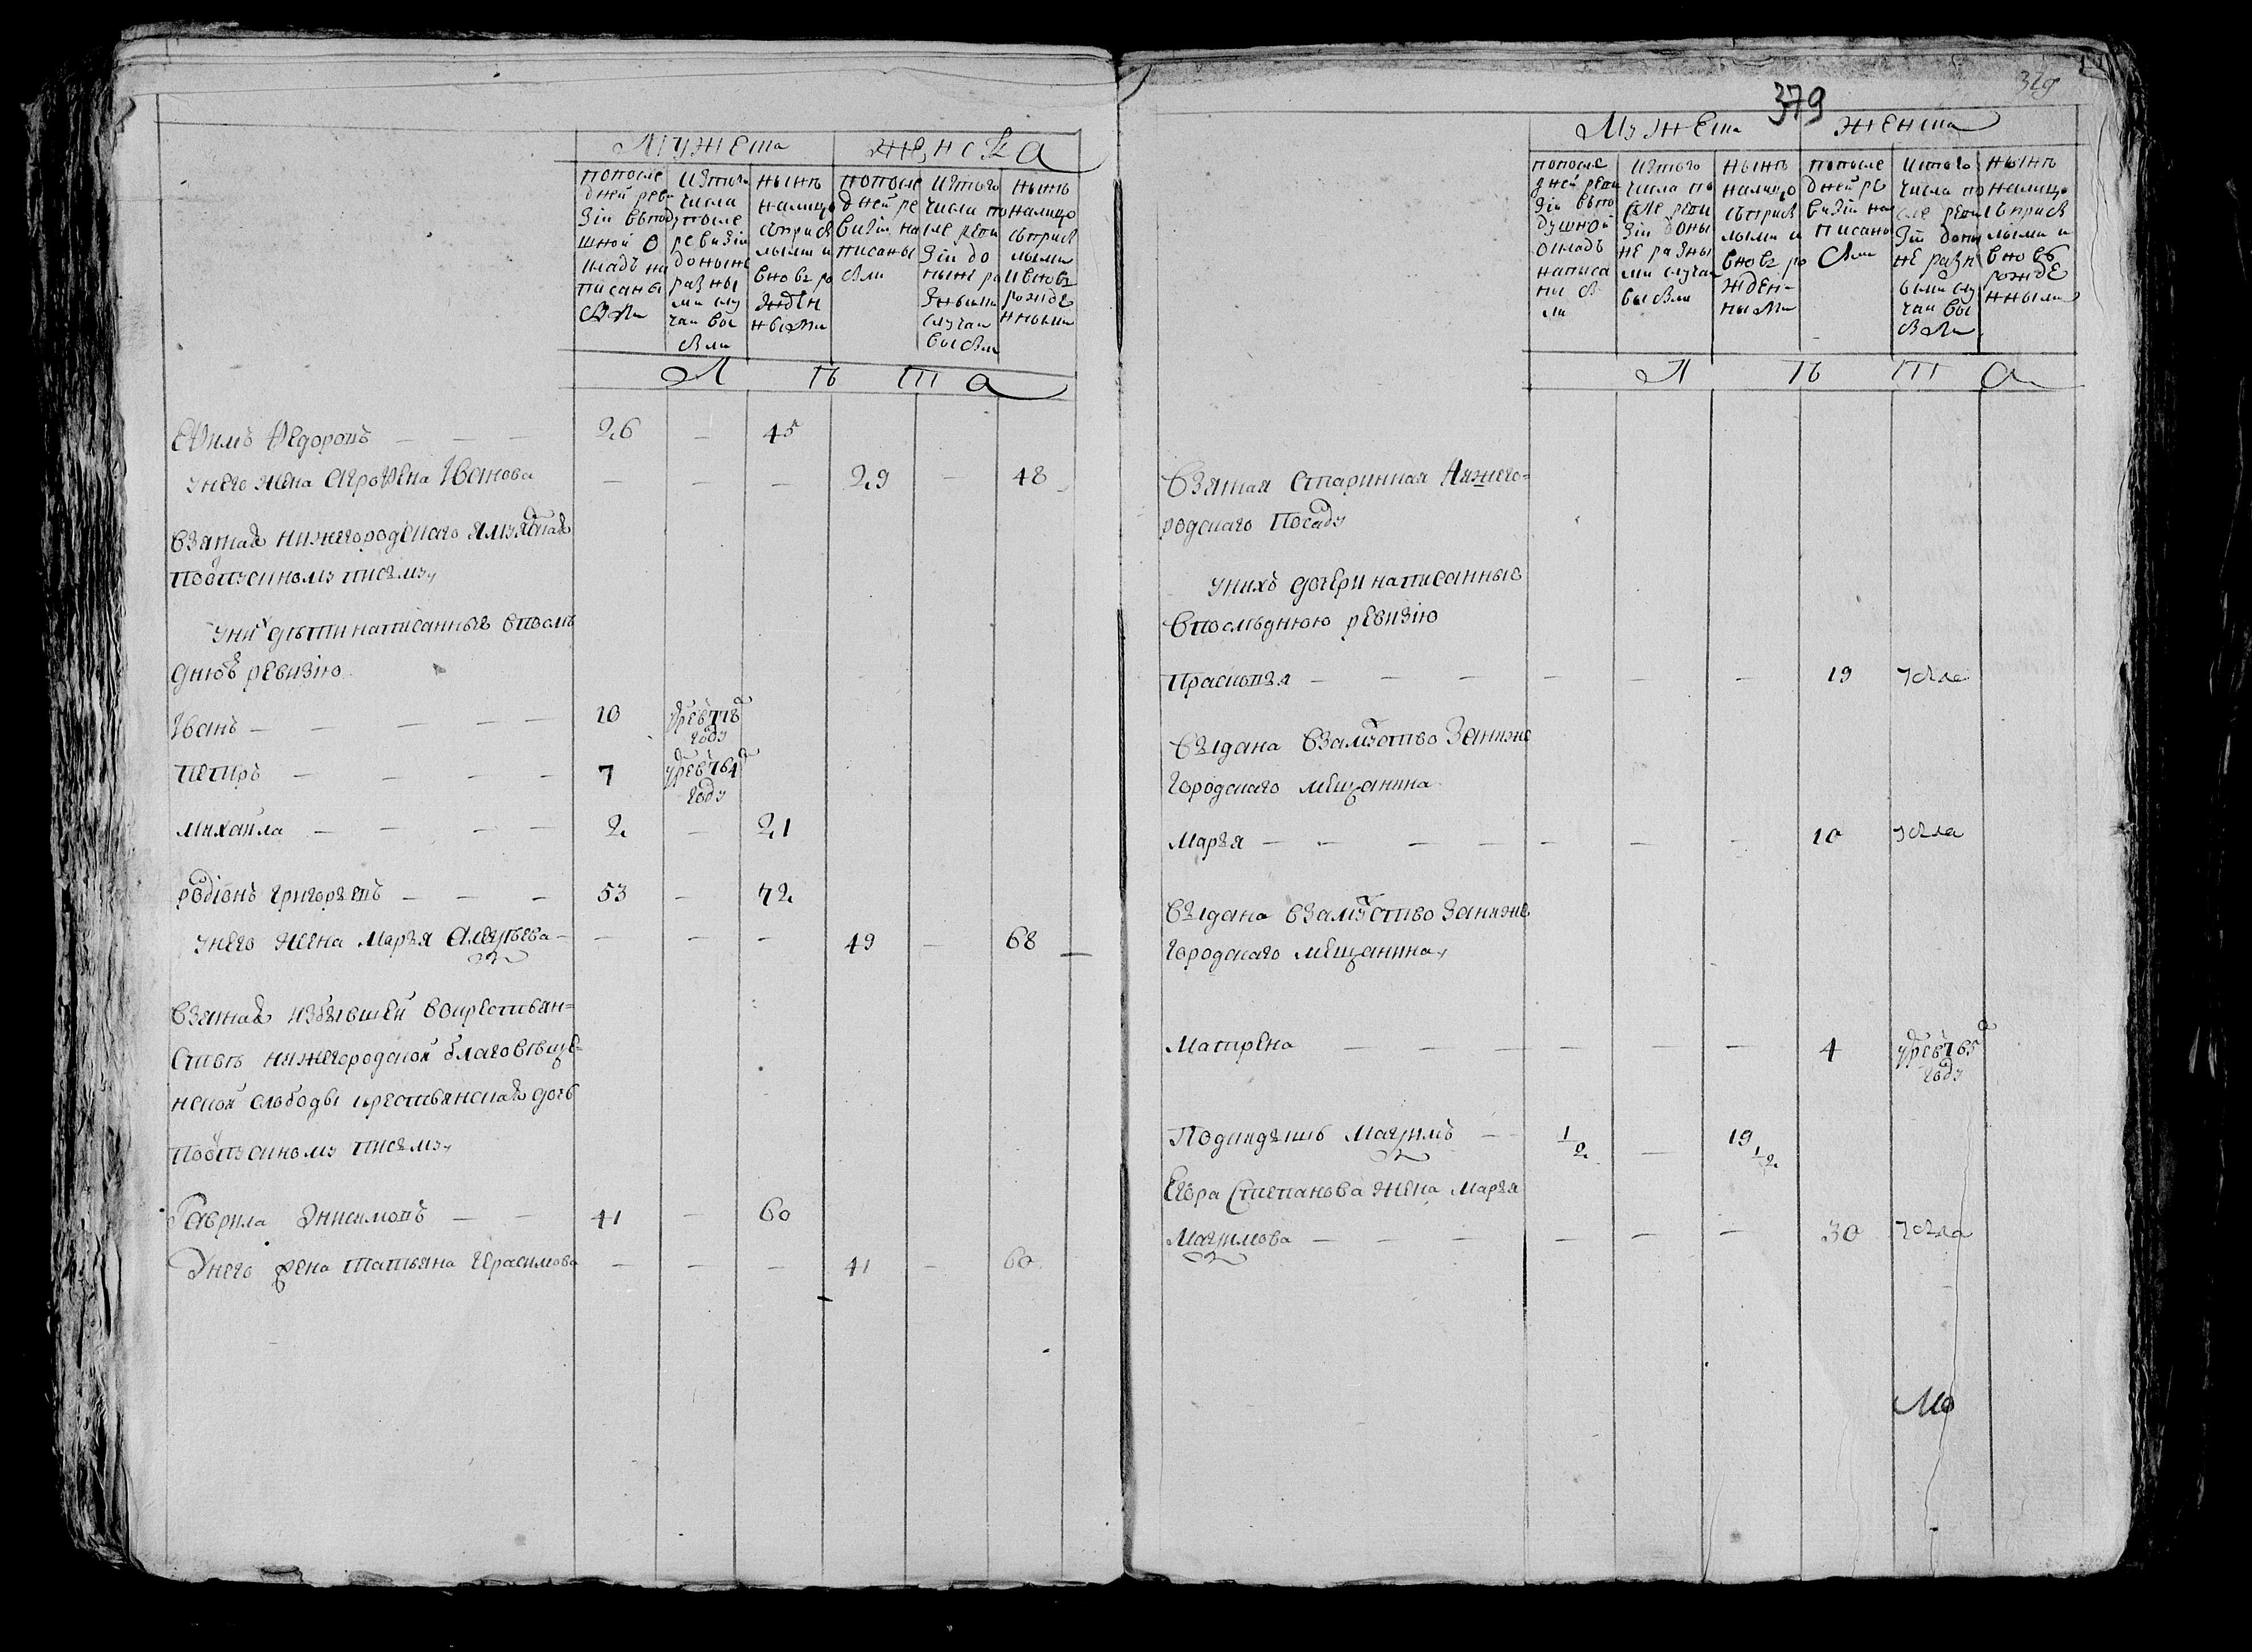 Мужеска
Женска
попосле
дней реви
зіи вьпод
ушной о
кладъ на
писаны
были
изтого
числа
упосле
ревизіи
доныне
разны
ми слу
чаи вы
были
нынъ
налицо
сприбы
лыми и
вновь ро
жден
ными
попосле
дней ре
визіи на
писаны
были
изтого
числа по
сле реви
зіи до
ныне ра
зными
случаи
выбыли
нынъ
налицо
сприбы
лыми
ивновь
рожде
нными
Л ѣ т а
Ефимъ Федоровъ — — — 26 — 45
унего жена Агрофена Иванова — — — 29 — 48
взятая нижегородскаго ямщика
поотпускному писму
уних дѣти написанныя впослѣ
днюю ревизію
Иванъ — — — — — 10 умре в 778
году
Петръ — — — — 7 умре в 764
году
михаила — — — — 2 — 21
родіонъ григорьевъ — — — 53 — 72
унего жена Марья Алексѣева — — — — 49 — 68
взятая избывшей вокрестьян=
ствѣ нижегородской благовѣще=
нской слободы крестьянская дочь
поотпускному писму
Гаврила Онисимовъ — — 41 — 60
Унего жена татьяна герасимова — — — 41 — 60
379
329
Мужеска
женска
попосле
дней реви
зіи впо
душной
окладъ
написа
ны бы
ли
изтого
числа по
сле реви
зіи доны
не разны
ми случаи
выбыли
нынъ
налицо
сприбы
лыми и
вновь ро
жден-
ными
попосле
дней ре
визіи на
писаны
были
изтого
числа по
сле реви
зіи доны
не разн
ыми слу
чаи вы
были
нынъ
налицо
сприбы
лыми и
вновь
рожде
нными
Л ѣ т а
взятая старинная Нижего=
родскаго Посаду
унихъ дочери написанные
впослѣднюю ревизію
Прасковья — — — — — — 19 убыла
выдана взамужство занижне
городскаго мещанина
Марья — — — — — — — 10 убыла
выдана взамужство занижне
городскаго мещанина
Матрена — — — — — — 4 умре в 765
году
Подкидышь Маѯимъ — — 1/2 — 19 1/2
Егора Степанова жена Марья
Маѯимова — — — — — — 30 убыла
Мо